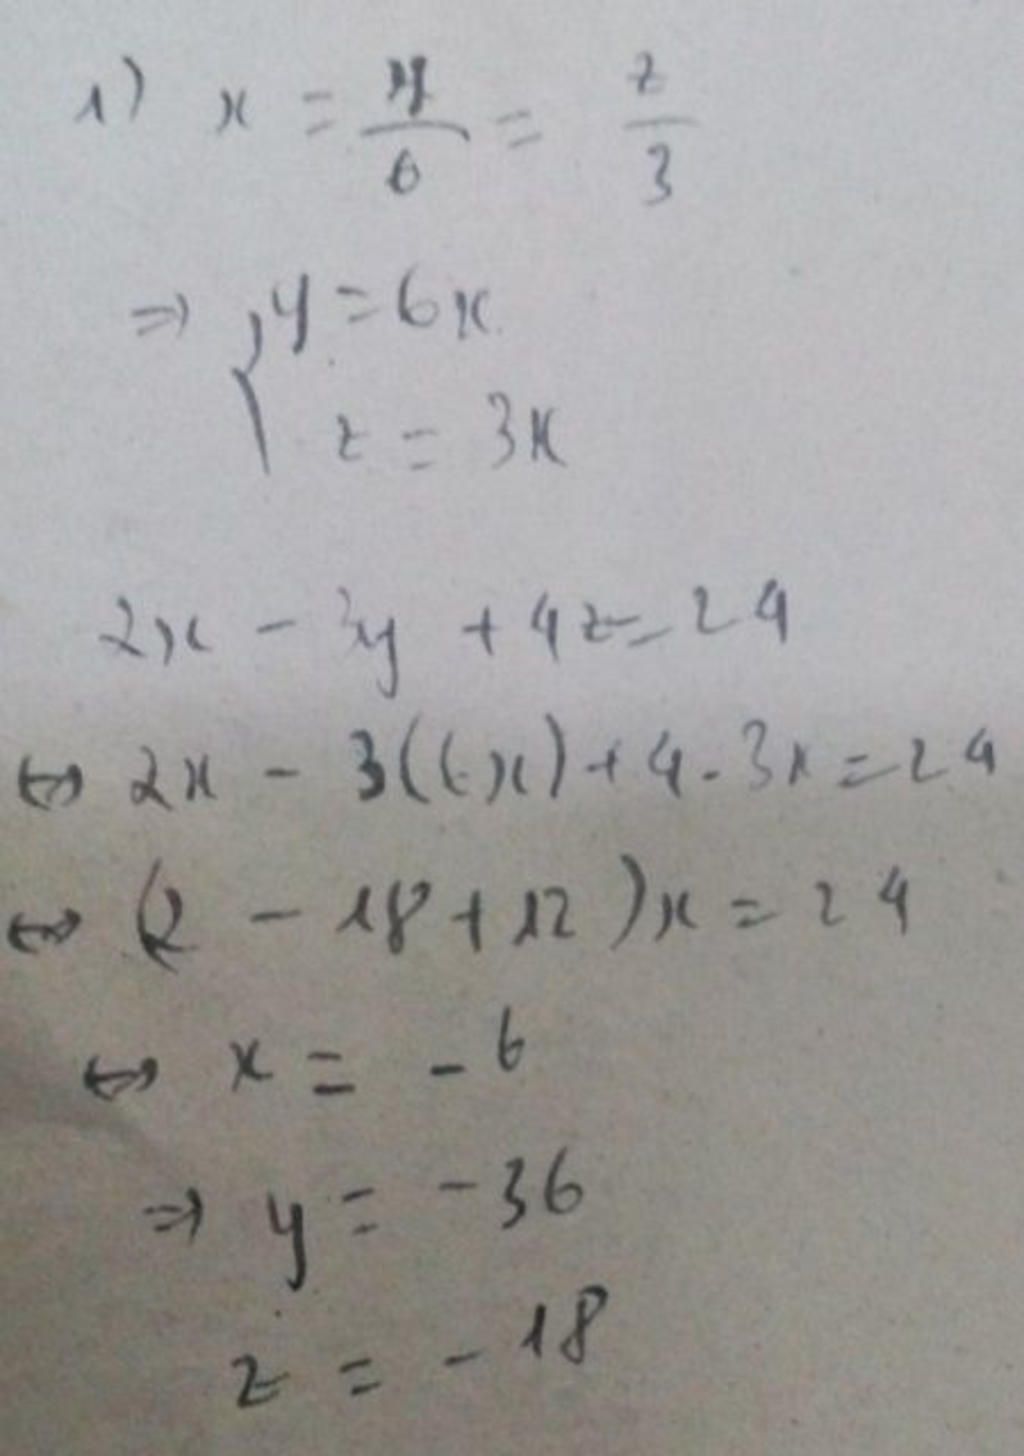 1) x = y/6 = z/3
⇒ { y = 6x
z = 3x
2x - 3y + 4z = 24
⇔ 2x - 3(6x) + 4.3x = 24
⇔ (2 - 18 + 12)x = 24
⇔ x = -6
⇒ y = -36
z = -18